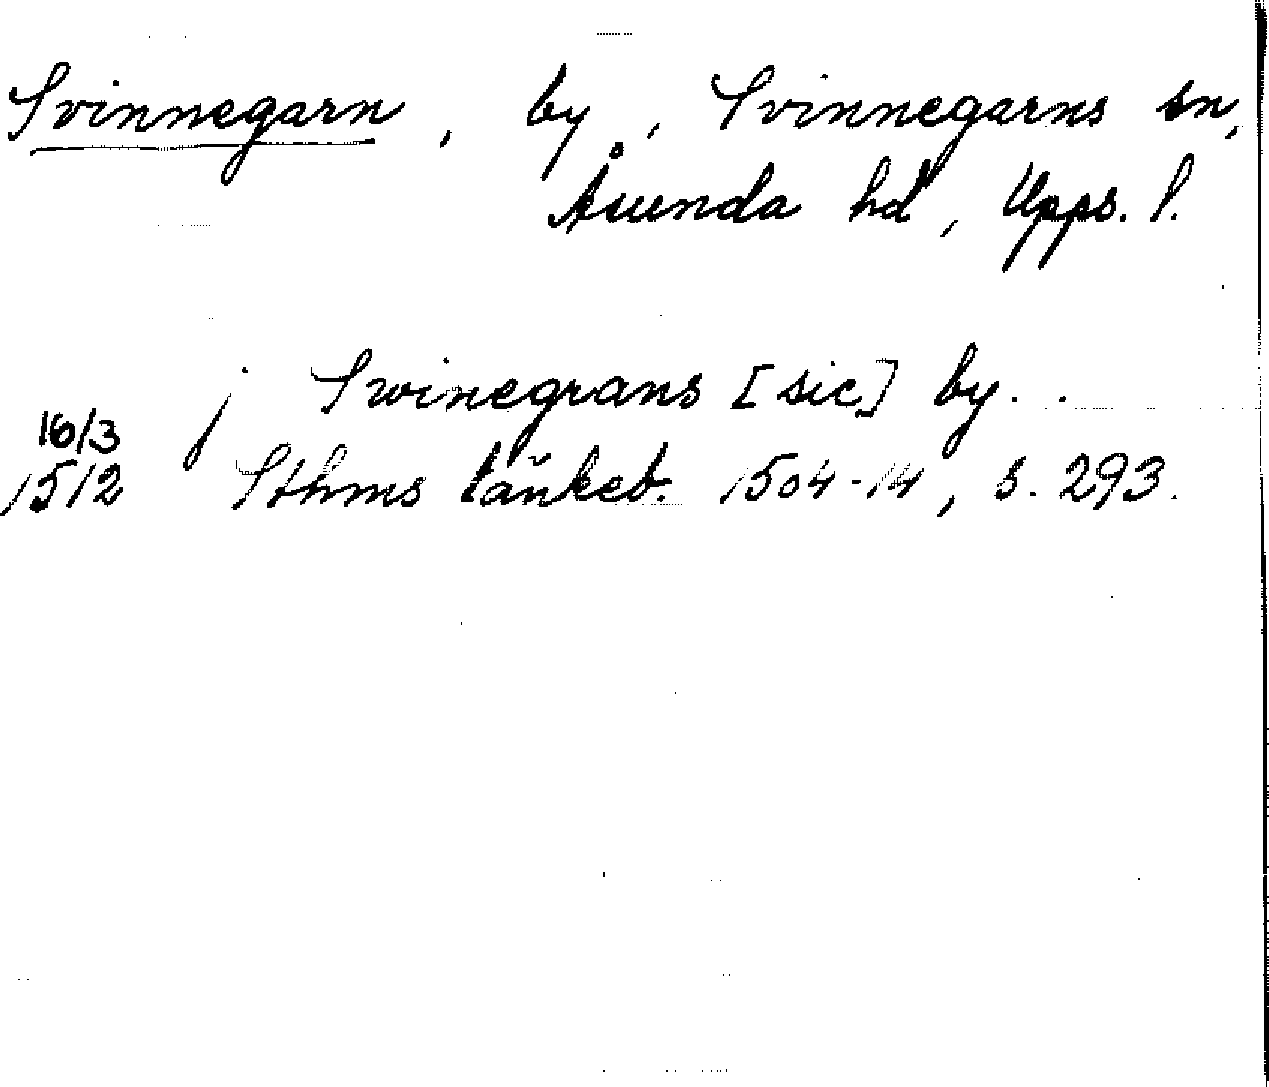 Svinnegarn, by, Svinnegarns sn,
Åsunda hd, Upps. l.
j Swinegrans [sic] by. .
16/3
1512 Sthms täňkeb. 1504-14, s. 293.